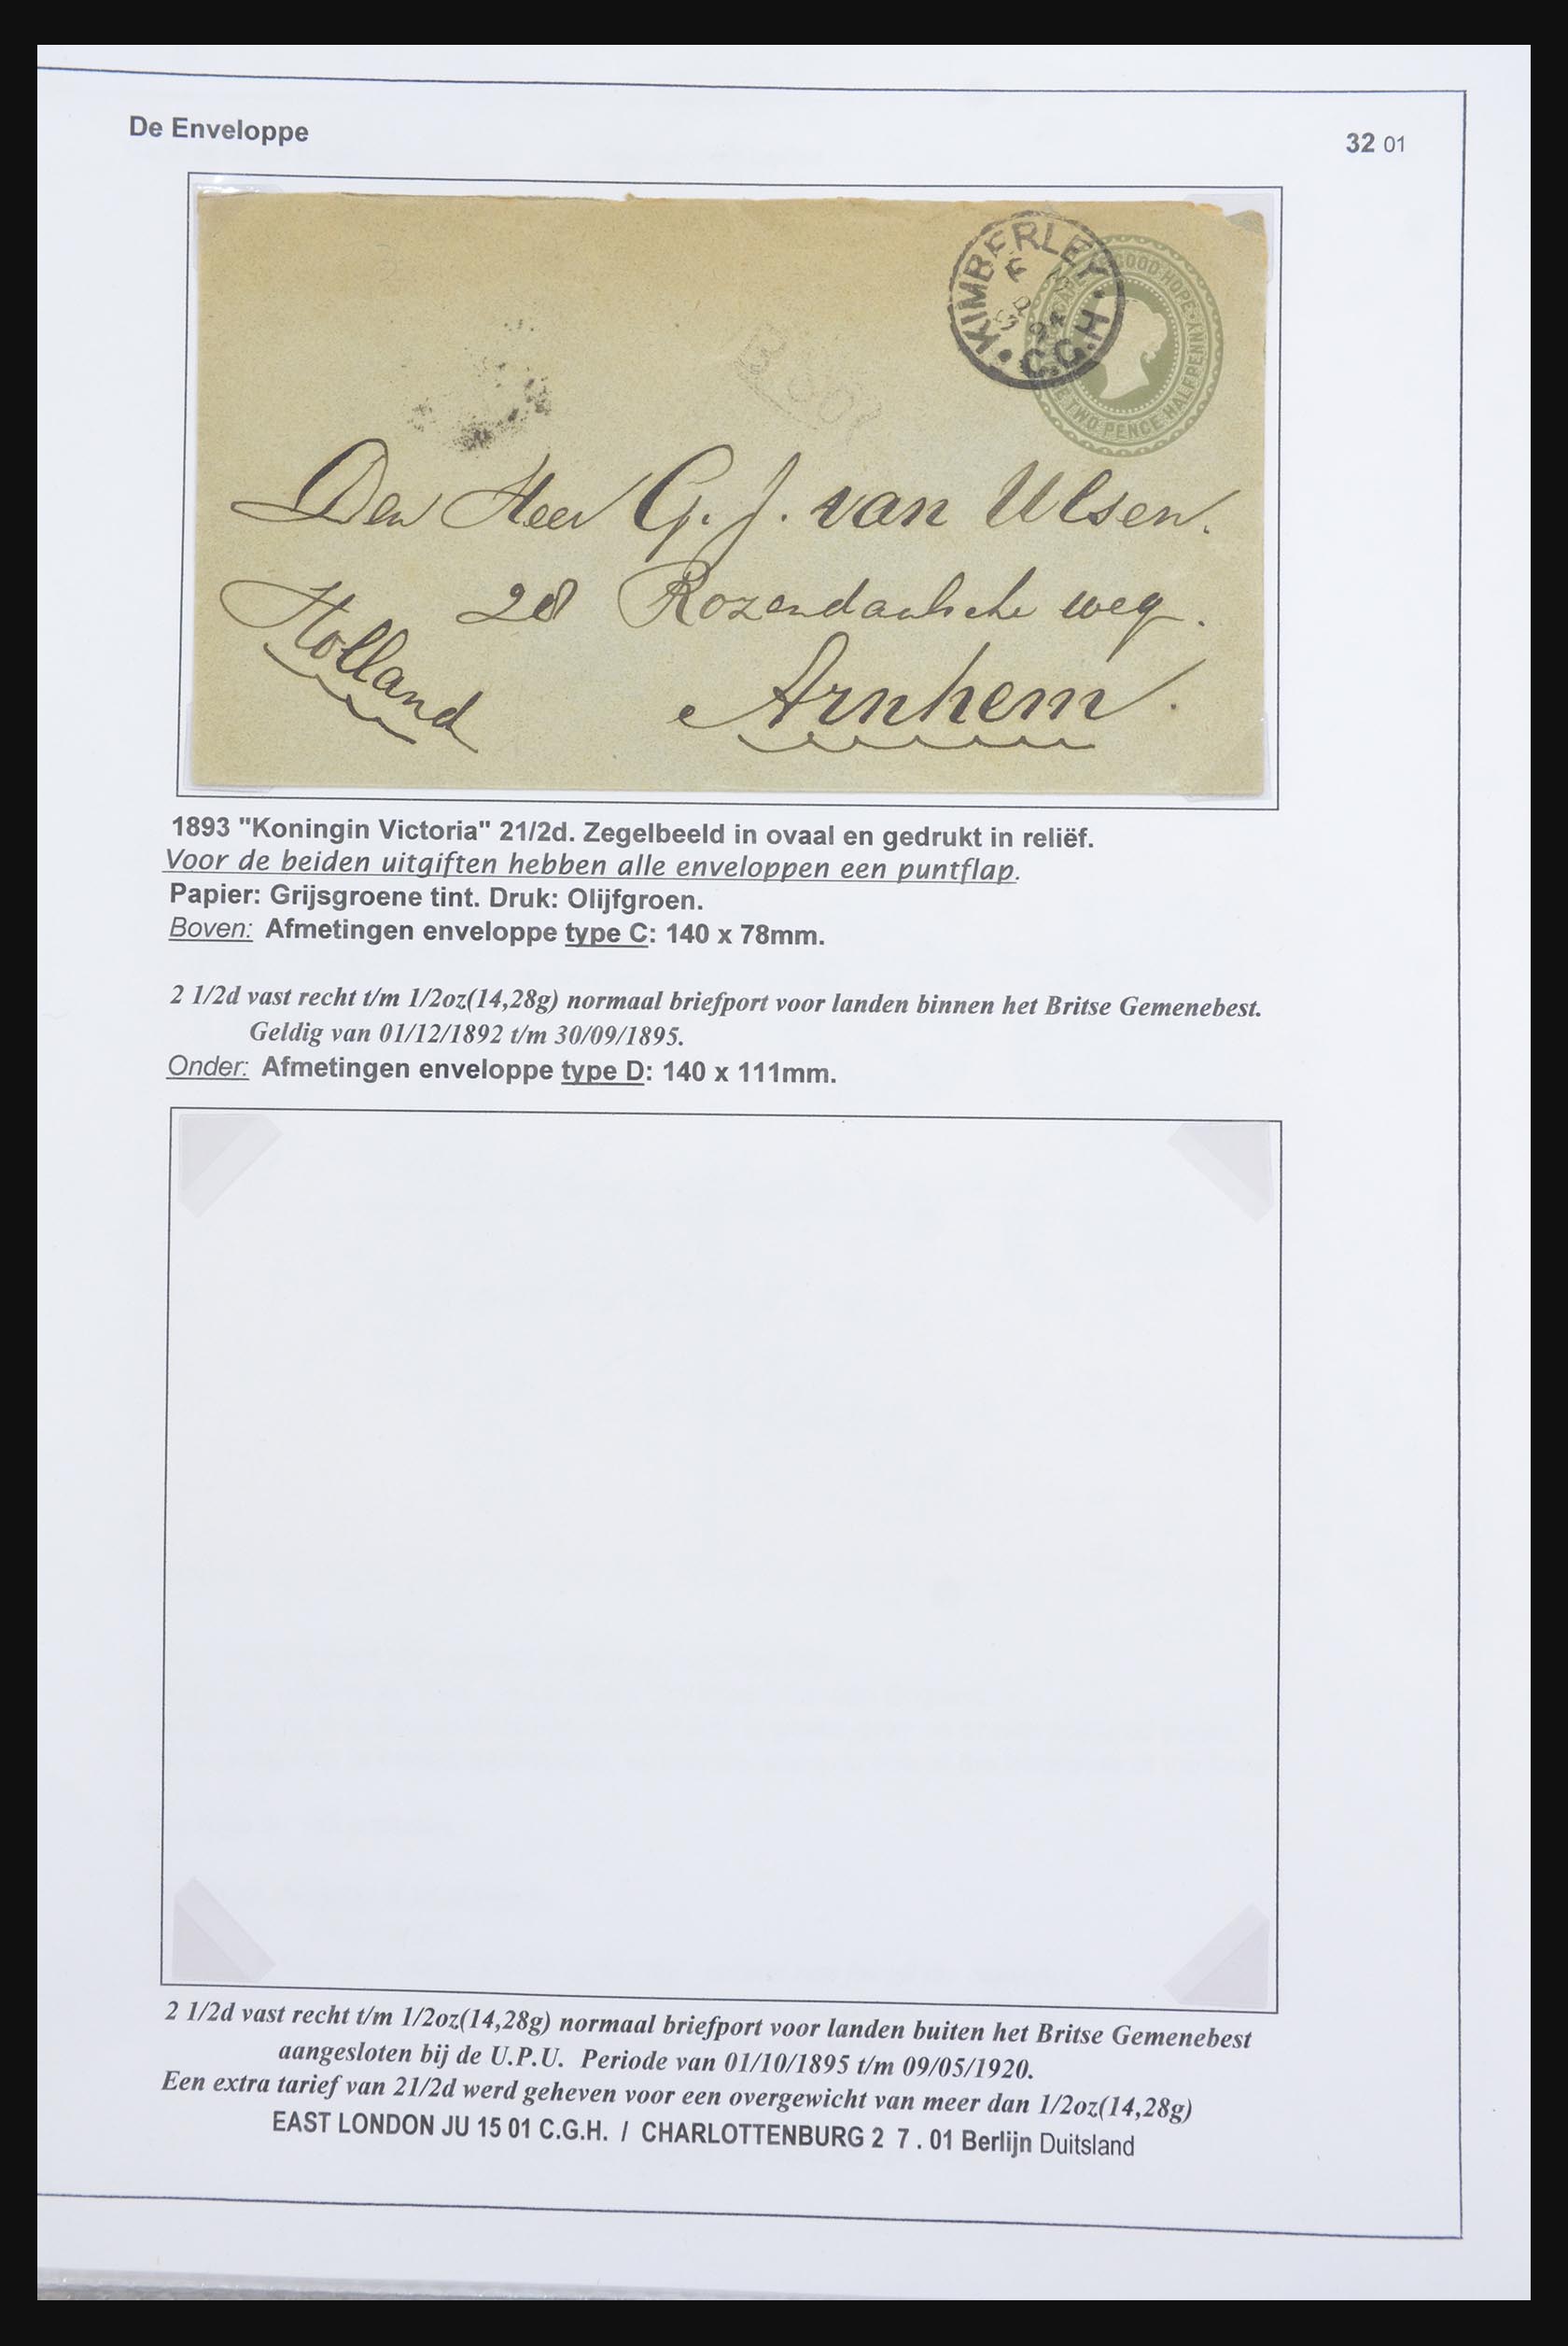 De Enveloppe
32 01
KIMBERLEY
C.G.H.
GOOD HOPE
TWO PENCE HALFPENNY
Den Heer G. J. van Ulsen.
28 Rozendaalsche weg.
Holland
Arnhem.
1893 "Koningin Victoria" 21/2d. Zegelbeeld in ovaal en gedrukt in reliëf.
Voor de beiden uitgiften hebben alle enveloppen een puntflap.
Papier: Grijsgroene tint. Druk: Olijfgroen.
Boven: Afmetingen enveloppe type C: 140 x 78mm.
2 1/2d vast recht t/m 1/2oz(14,28g) normaal briefport voor landen binnen het Britse Gemenebest.
Geldig van 01/12/1892 t/m 30/09/1895.
Onder: Afmetingen enveloppe type D: 140 x 111mm.
2 1/2d vast recht t/m 1/2oz(14,28g) normaal briefport voor landen buiten het Britse Gemenebest
aangesloten bij de U.P.U. Periode van 01/10/1895 t/m 09/05/1920.
Een extra tarief van 21/2d werd geheven voor een overgewicht van meer dan 1/2oz(14,28g)
EAST LONDON JU 15 01 C.G.H. / CHARLOTTENBURG 2 7 . 01 Berlijn Duitsland